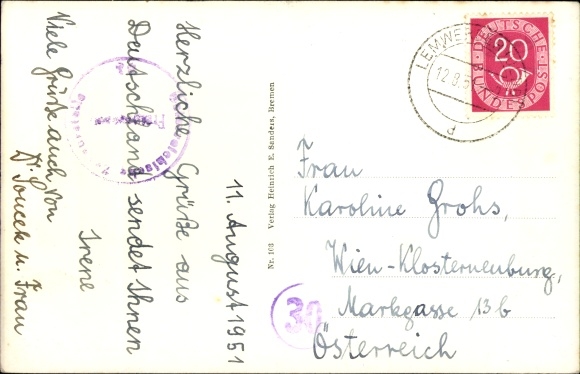 11. August 1951
Herzliche Grüße aus
Deutschland sendet Ihnen
Irene
Viele Grüße auch von
Dr. Soucek u. Frau
Nr. 103 Verlag Heinrich E. Sanders, Bremen
LEMWER
12.8.5
d
DEUTSCHE
20
BUNDESPOST
Frau
Karoline Grohs,
Wien-Klosterneuburg,
Markgasse 13b
Österreich
30